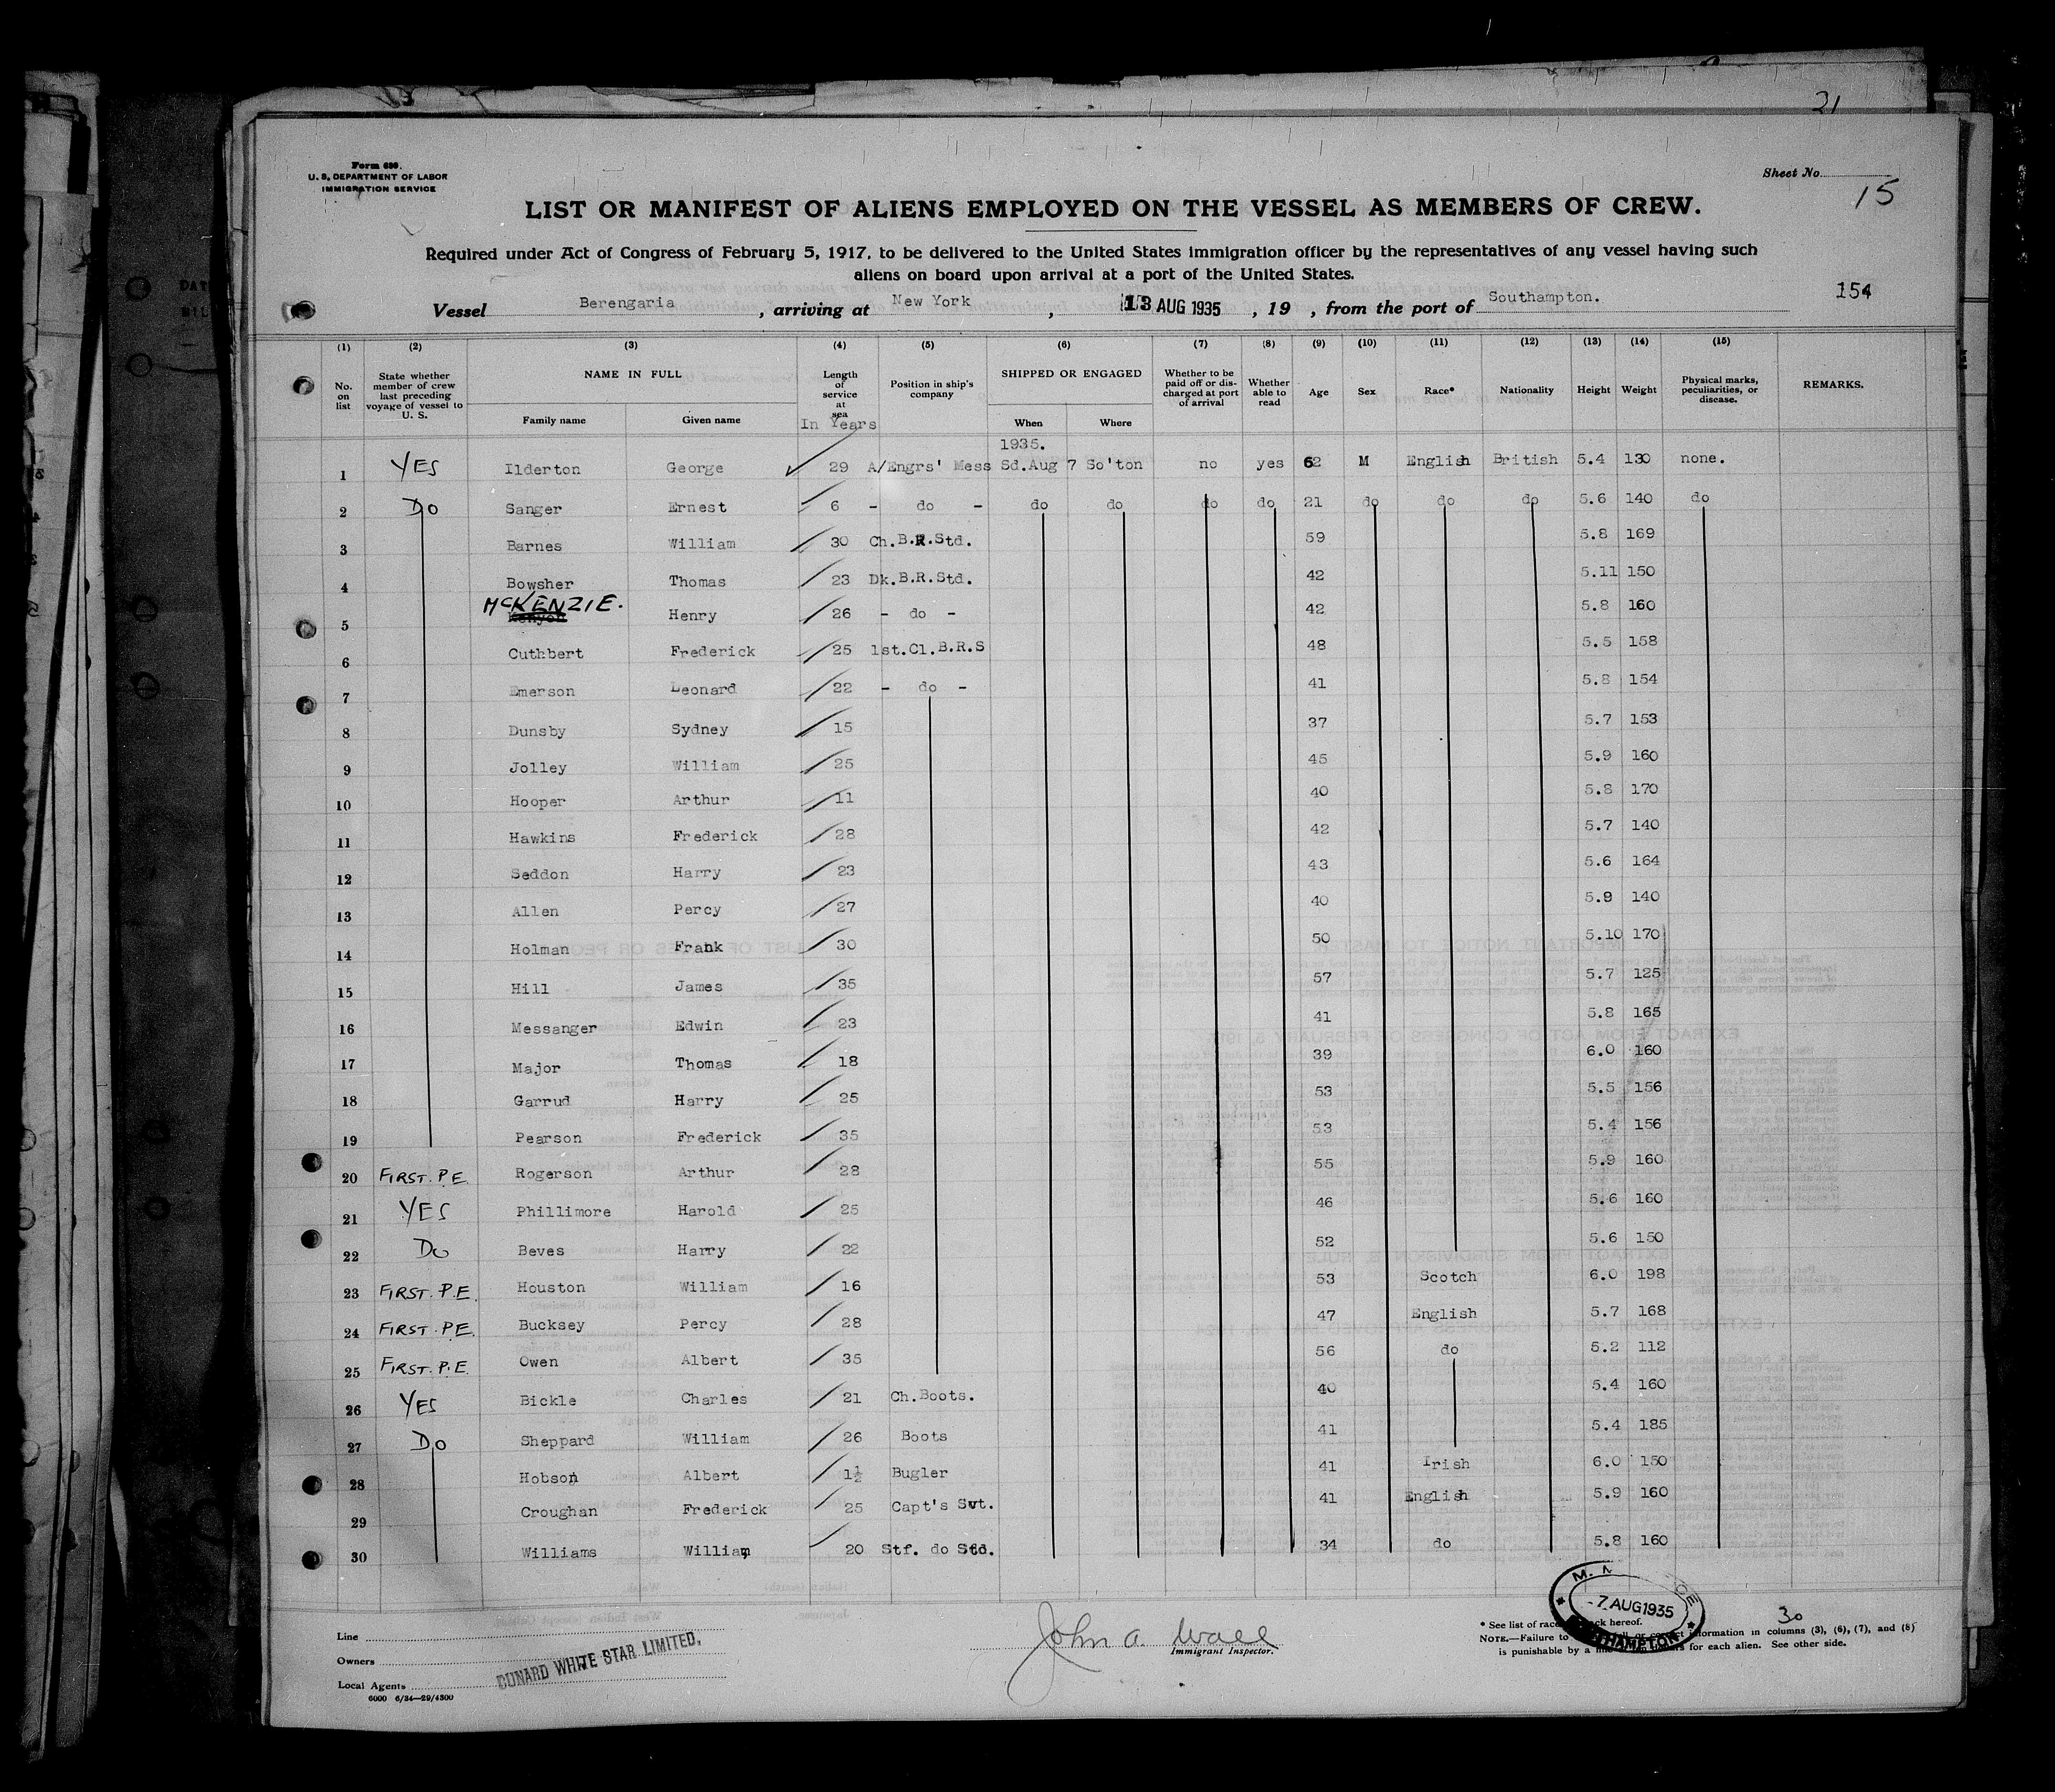 21
Form 689.
U. S. DEPARTMENT OF LABOR
IMMIGRATION SERVICE
Sheet No. 15
LIST OR MANIFEST OF ALIENS EMPLOYED ON THE VESSEL AS MEMBERS OF CREW.
Required under Act of Congress of February 5, 1917, to be delivered to the United States immigration officer by the representatives of any vessel having such
aliens on board upon arrival at a port of the United States.
154
Vessel Berengaria, arriving at New York, 13 AUG 1935, 19 , from the port of Southampton.
(1) (2) (3) (4) (5) (6) (7) (8) (9) (10) (11) (12) (13) (14) (15)
No. on list State whether member of crew last preceding voyage of vessel to U. S. NAME IN FULL Family name Given name Length of service at sea In Years Position in ship's company SHIPPED OR ENGAGED When Where Whether to be paid off or discharged at port of arrival Whether able to read Age Sex Race* Nationality Height Weight Physical marks, peculiarities, or disease. REMARKS.
1935.
1 YES Ilderton George 29 A/Engrs' Mess Sd. Aug 7 So'ton no yes 62 M English British 5.4 130 none.
2 Do Sanger Ernest 6 - do - do do do do 21 do do do 5.6 140 do
3 Barnes William 30 Ch.B.R.Std. 59 5.8 169
4 Bowsher Thomas 23 Dk.B.R.Std. 42 5.11 150
5 McKENZIE. Henry 26 - do - 42 5.8 160
6 Cuthbert Frederick 25 1st.Cl.B.R.S 48 5.5 158
7 Emerson Leonard 22 - do - 41 5.8 154
8 Dunsby Sydney 15 37 5.7 153
9 Jolley William 25 45 5.9 160
10 Hooper Arthur 11 40 5.8 170
11 Hawkins Frederick 28 42 5.7 140
12 Seddon Harry 23 43 5.6 164
13 Allen Percy 27 40 5.9 140
14 Holman Frank 30 50 5.10 170
15 Hill James 35 57 5.7 125
16 Messanger Edwin 23 41 5.8 165
17 Major Thomas 18 39 6.0 160
18 Garrud Harry 25 53 5.5 156
19 Pearson Frederick 35 53 5.4 156
20 FIRST. P.E. Rogerson Arthur 28 55 5.9 160
21 YES Phillimore Harold 25 46 5.6 160
22 Do Beves Harry 22 52 5.6 150
23 FIRST. P.E. Houston William 16 53 Scotch 6.0 198
24 FIRST. P.E. Bucksey Percy 28 47 English 5.7 168
25 FIRST. P.E. Owen Albert 35 56 do 5.2 112
26 YES Bickle Charles 21 Ch.Boots. 40 5.4 160
27 Do Sheppard William 26 Boots 41 5.4 185
28 Hobson Albert 1½ Bugler 41 Irish 6.0 150
29 Croughan Frederick 25 Capt's Svt. 41 English 5.9 160
30 Williams William 20 Stf. do Std. 34 do 5.8 160
Line
Owners CUNARD WHITE STAR LIMITED.
Local Agents
6000 6/34—29/4300
John A. Wall
Immigrant Inspector.
- 7 AUG 1935
30
* See list of hereof.
NOTE.—Failure to information in columns (3), (6), (7), and (8)
is punishable by a for each alien. See other side.